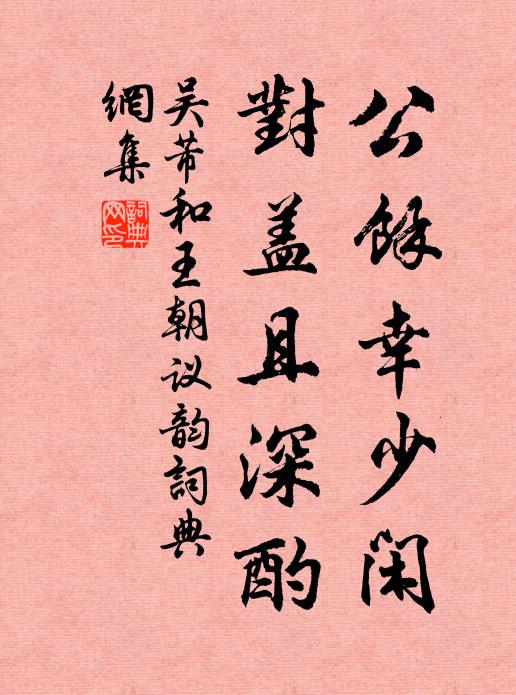 公餘幸少闲
對盖且深酌
吴芾和王朝议韵詞典
網集
詞典
网印